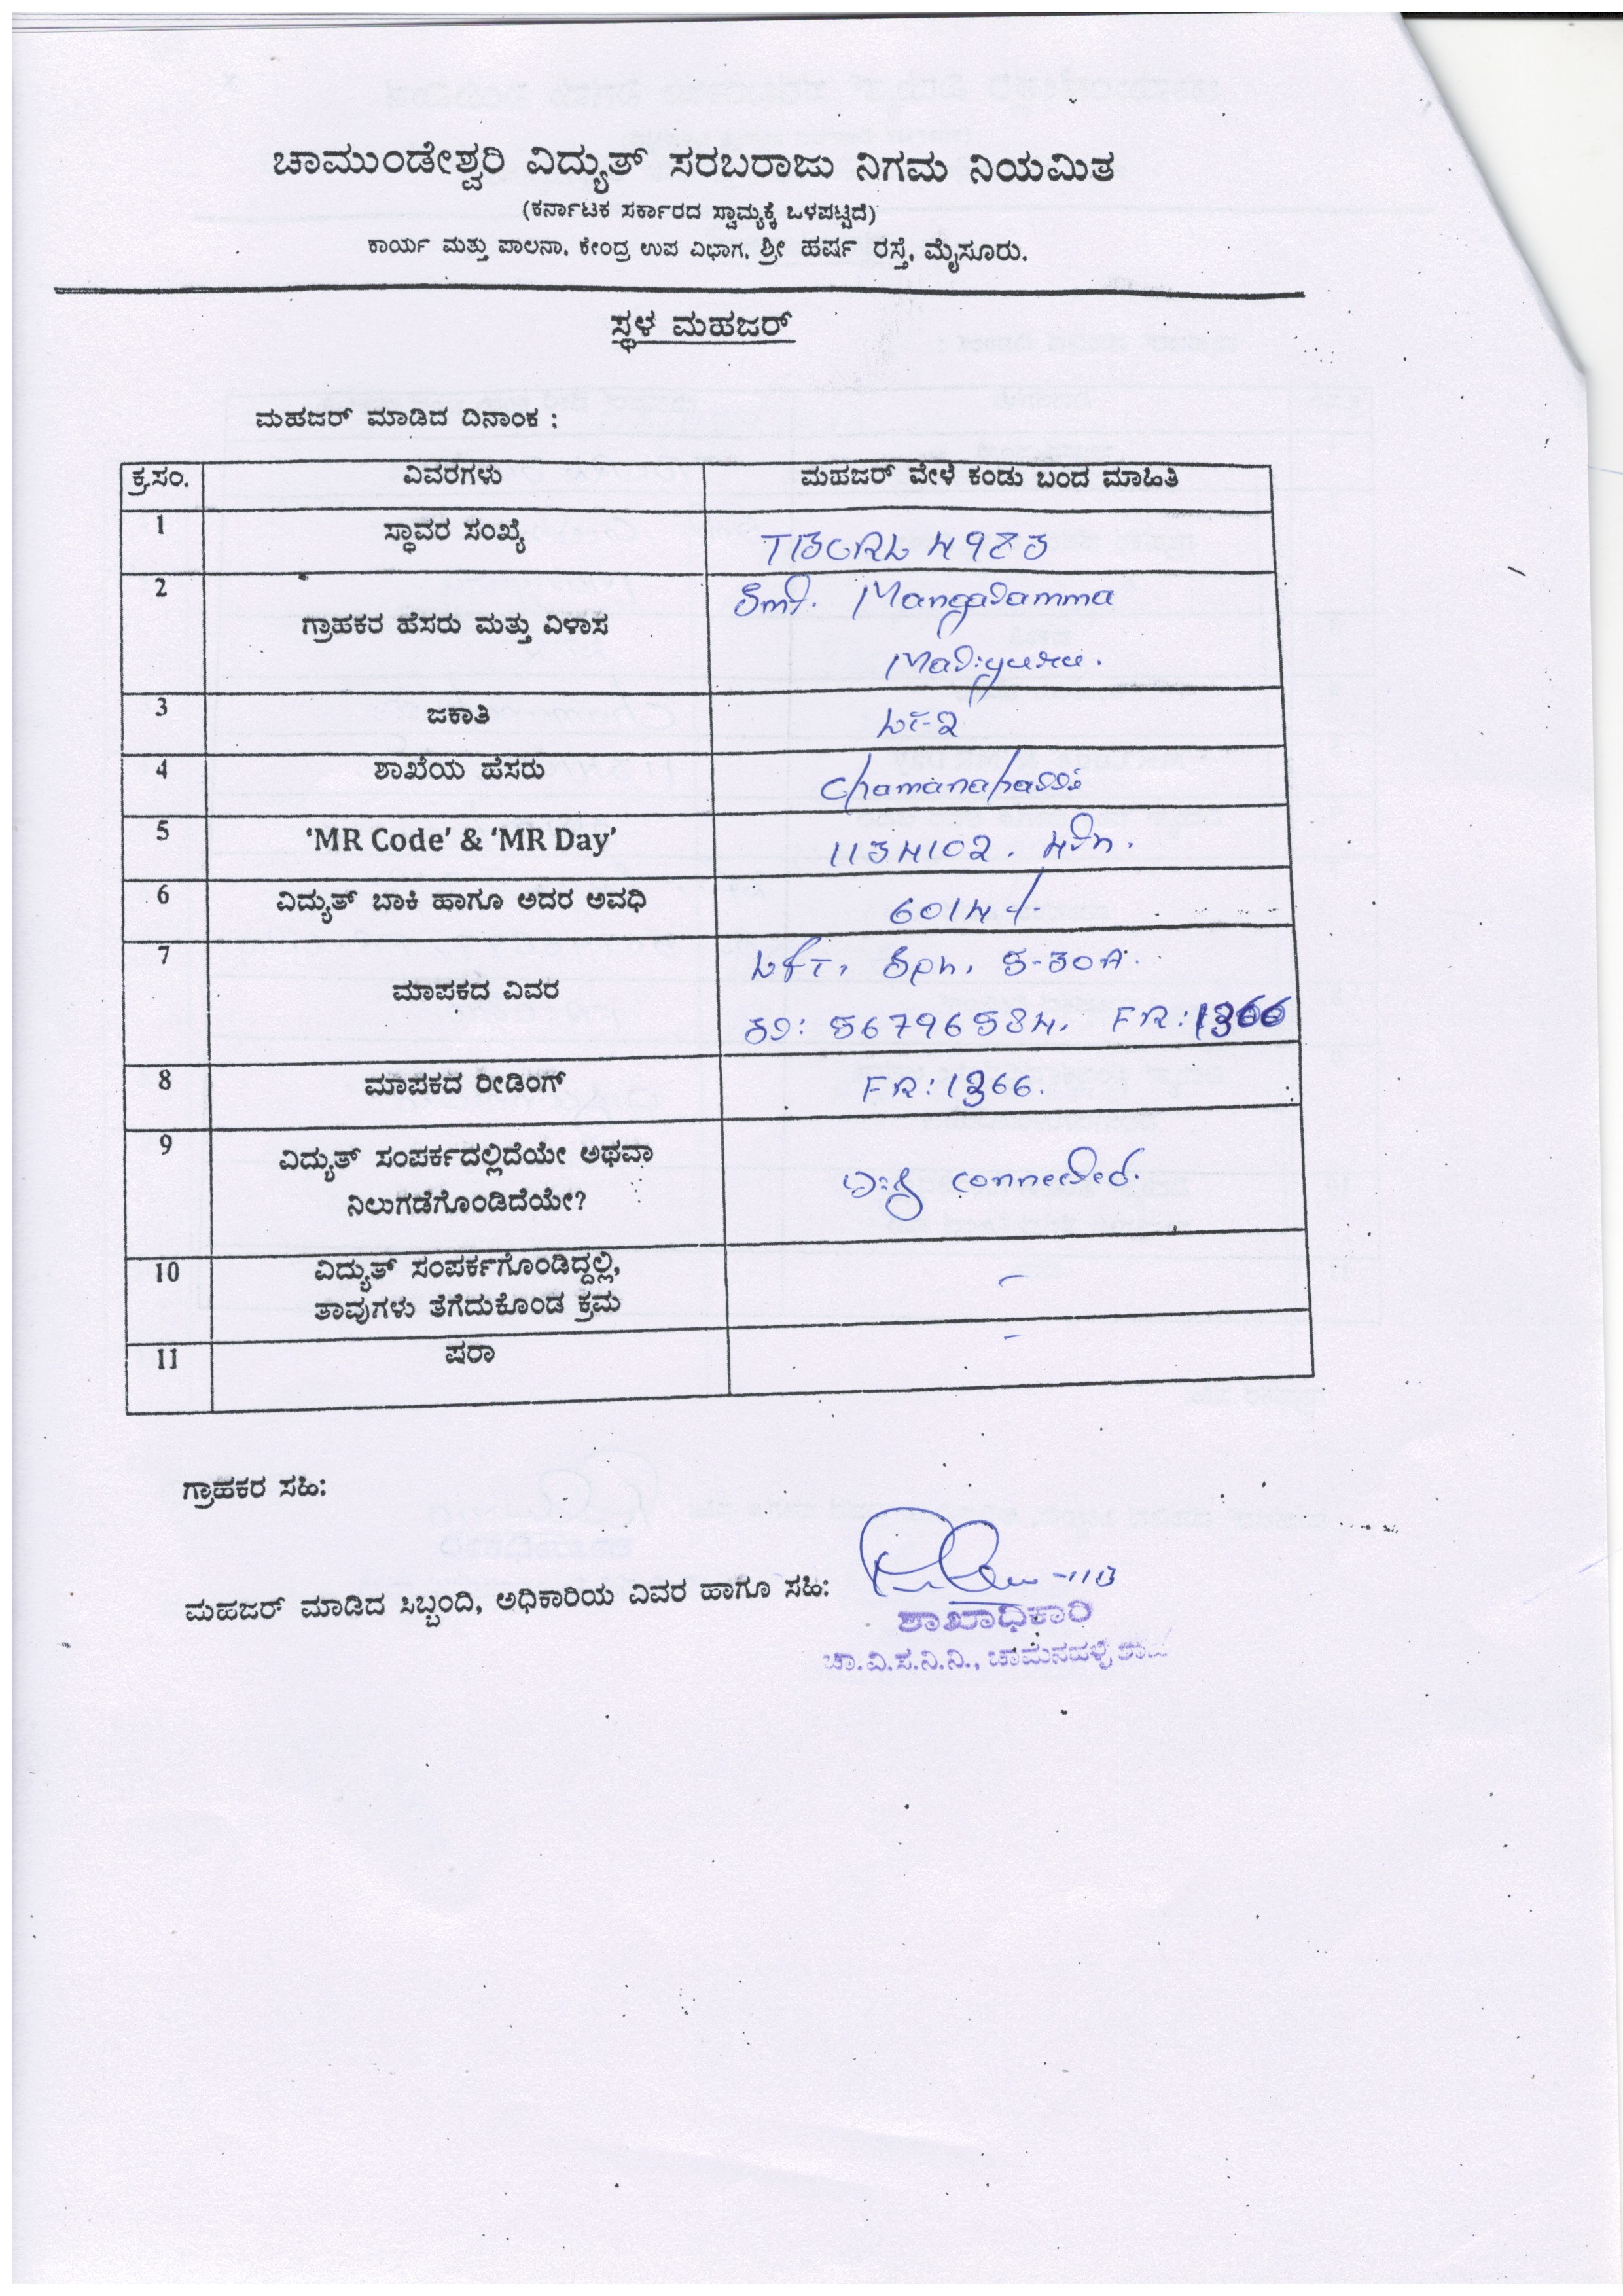 ಚಾಮುಂಡೇಶ್ವರಿ ವಿದ್ಯುತ್ ಸರಬರಾಜು ನಿಗಮ ನಿಯಮಿತ
(ಕರ್ನಾಟಕ ಸರ್ಕಾರದ ಸ್ವಾಮ್ಯಕ್ಕೆ ಒಳಪಟ್ಟಿದೆ)
ಕಾರ್ಯ ಮತ್ತು ಪಾಲನಾ, ಕೇಂದ್ರ ಉಪ ವಿಭಾಗ, ಶ್ರೀ ಹರ್ಷ ರಸ್ತೆ, ಮೈಸೂರು.
ಸ್ಥಳ ಮಹಜರ್
ಮಹಜರ್ ಮಾಡಿದ ದಿನಾಂಕ :
ಕ್ರ.ಸಂ. ವಿವರಗಳು ಮಹಜರ್ ವೇಳೆ ಕಂಡು ಬಂದ ಮಾಹಿತಿ
1 ಸ್ಥಾವರ ಸಂಖ್ಯೆ 4983
2 ಗ್ರಾಹಕರ ಹೆಸರು ಮತ್ತು ವಿಳಾಸ Smt. Mangalamma
3 ಜಕಾತಿ LT-2
4 ಶಾಖೆಯ ಹೆಸರು Chamanahalli
5 'MR Code' & 'MR Day' 1134102. 4th.
6 ವಿದ್ಯುತ್ ಬಾಕಿ ಹಾಗೂ ಅದರ ಅವಧಿ 6014/-
7 ಮಾಪಕದ ವಿವರ L&T, Sph, 5-30A.
Sl: 56796584. FR: 1366
8 ಮಾಪಕದ ರೀಡಿಂಗ್ FR: 1366.
9 ವಿದ್ಯುತ್ ಸಂಪರ್ಕದಲ್ಲಿದೆಯೇ ಅಥವಾ
ನಿಲುಗಡೆಗೊಂಡಿದೆಯೇ? connected.
10 ವಿದ್ಯುತ್ ಸಂಪರ್ಕಗೊಂಡಿದ್ದಲ್ಲಿ, -
ತಾವುಗಳು ತೆಗೆದುಕೊಂಡ ಕ್ರಮ
11 ಷರಾ -
ಗ್ರಾಹಕರ ಸಹಿ:
ಮಹಜರ್ ಮಾಡಿದ ಸಿಬ್ಬಂದಿ, ಅಧಿಕಾರಿಯ ವಿವರ ಹಾಗೂ ಸಹಿ:
ಶಾಖಾಧಿಕಾರಿ
ಚಾ.ವಿ.ಸ.ನಿ.ನಿ., ಚಾಮನಹಳ್ಳಿ